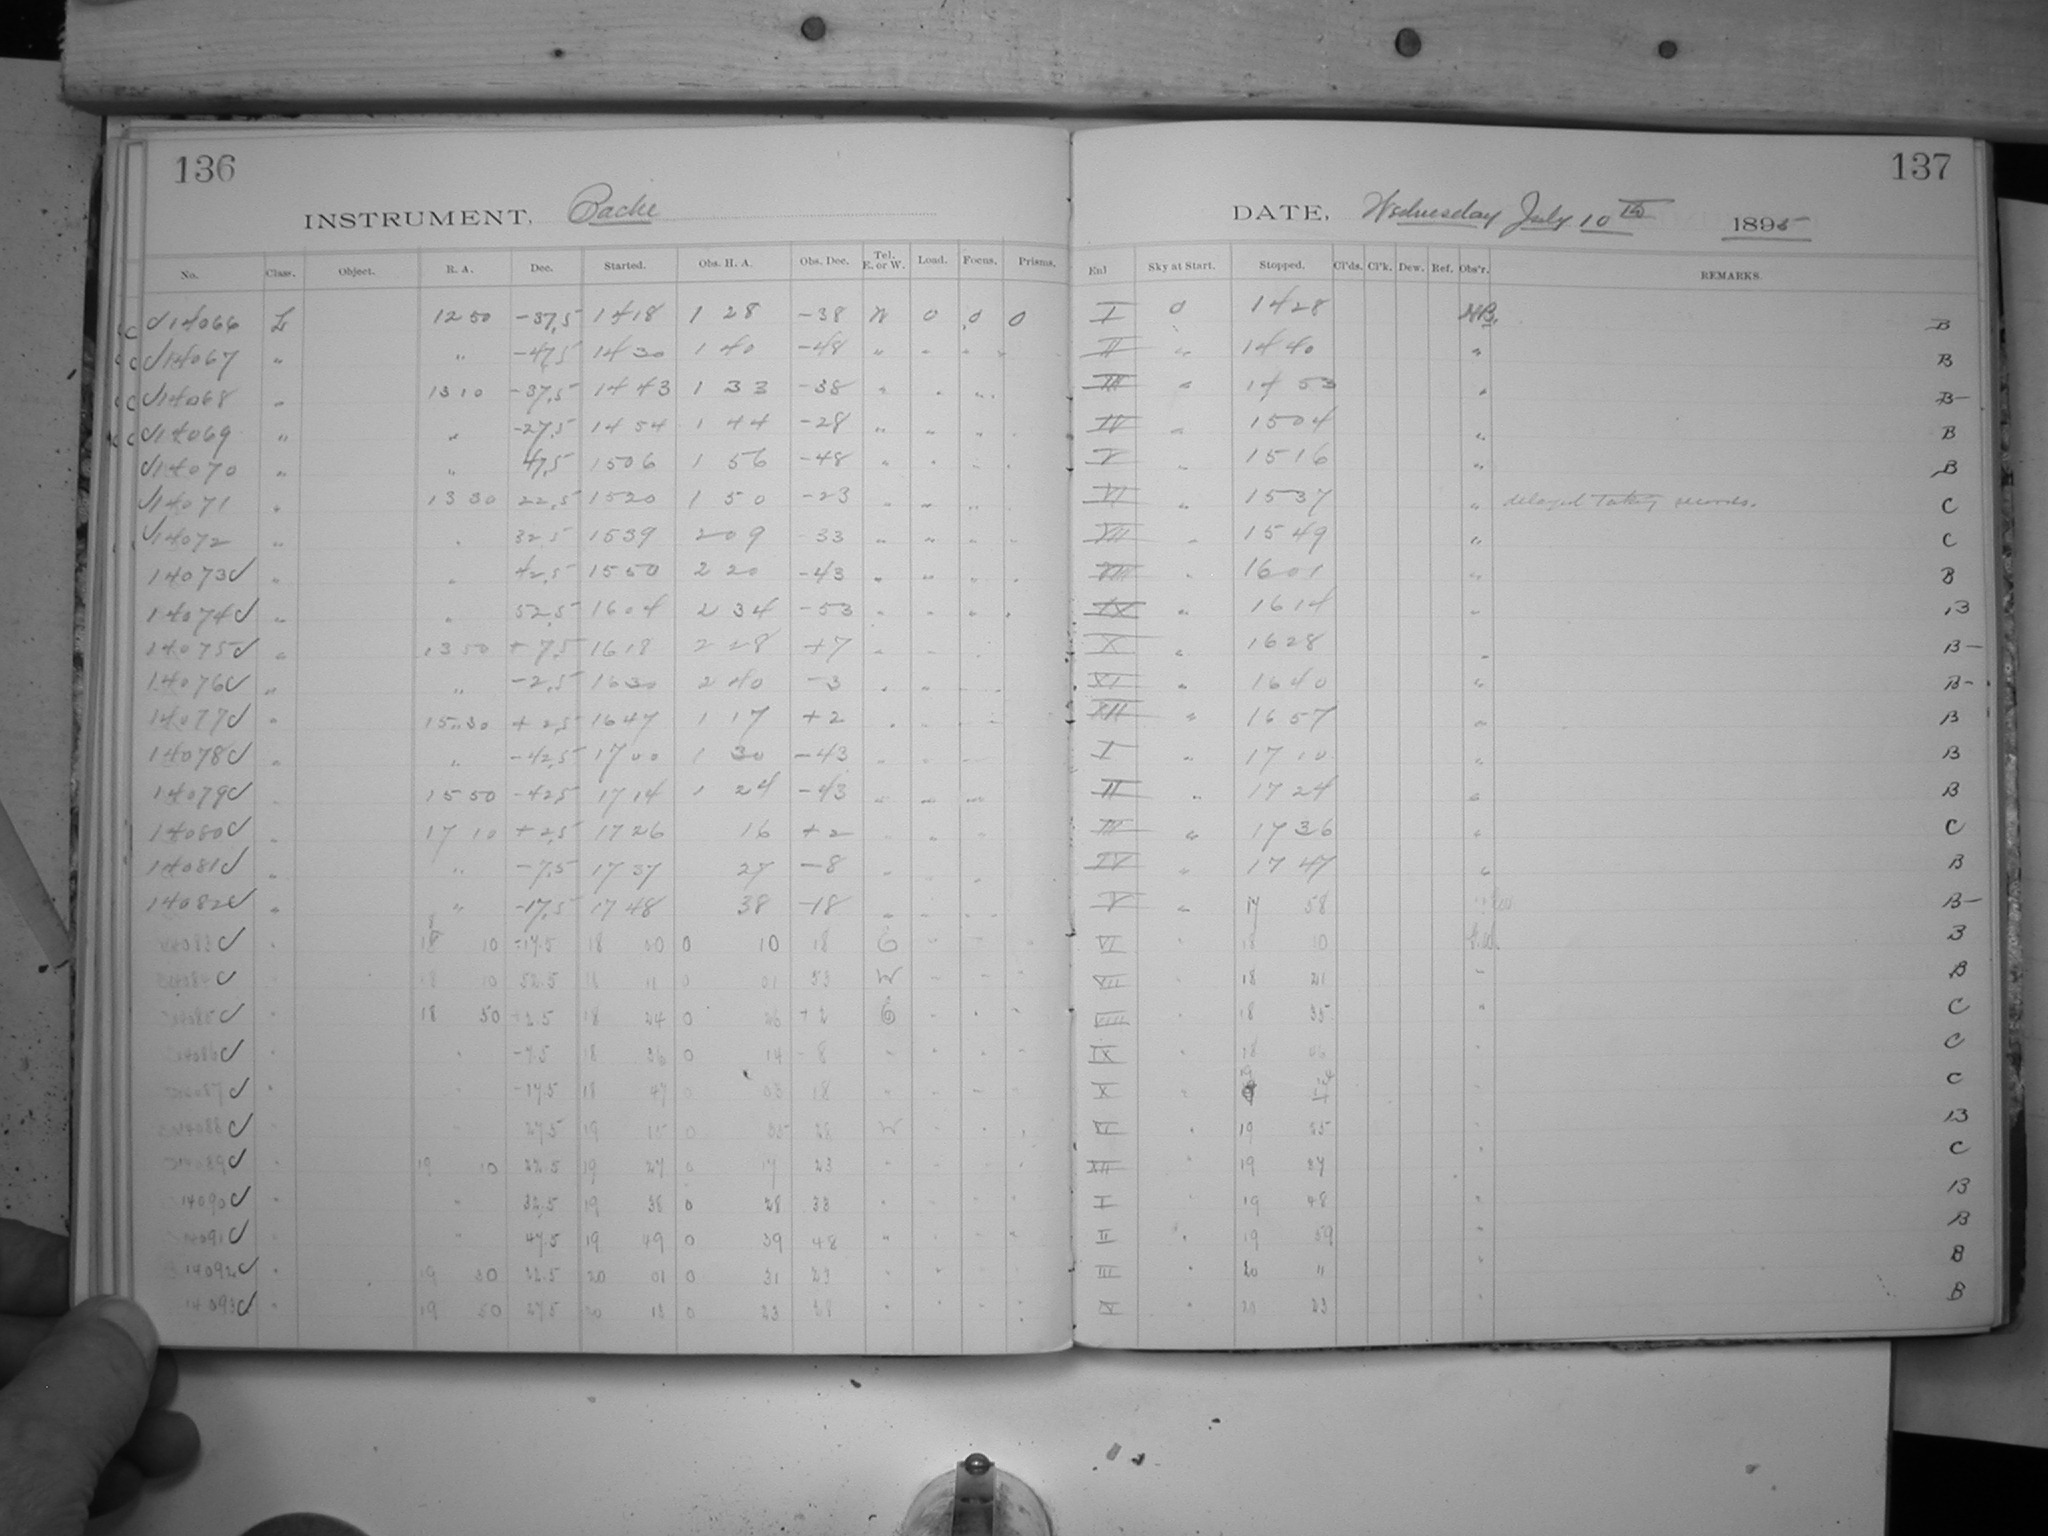 136
137
INSTRUMENT, Bache
DATE, Wednesday July 10th 1895
No. Class. Object. R. A. Dec. Started. Obs. H. A. Obs. Dec. Tel. E. or W. Load. Focus. Prisms. Enl Sky at Start. Stopped. Cl'ds. Cl'k. Dew. Ref. Obs'r. REMARKS.
14066 L 12 50 -37.5 14 18 1 28 -38 W 0 0 0 I 0 14 28 B
14067 " " -47.5 14 30 1 40 -48 " " " " II " 14 40 " B
14068 " 13 10 -37.5 14 43 1 33 -38 " " " " III " 14 53 " B-
14069 " " -27.5 14 54 1 44 -28 " " " " IV " 15 04 " B
14070 " " 47.5 15 06 1 56 -48 " " " " V " 15 16 " B
14071 " 13 30 22.5 15 20 1 50 -23 " " " " VI " 15 37 " delayed taking records. C
14072 " " 32.5 15 39 2 09 -33 " " " " VII " 15 49 " C
14073 " " 42.5 15 50 2 20 -43 " " " " VIII " 16 01 " B
14074 " " 52.5 16 04 2 34 -53 " " " " IX " 16 14 " B
14075 " 13 50 +7.5 16 18 2 28 +7 " " " X " 16 28 " B-
14076 " " -2.5 16 30 2 40 -3 " " " " XI " 16 40 " B-
14077 " 15 30 +2.5 16 47 1 17 +2 " " " " XII " 16 57 " B
14078 " " -42.5 17 00 1 30 -43 " " " I " 17 10 " B
14079 " 15 50 -42.5 17 14 1 24 -43 " " " II " 17 24 " B
14080 " 17 10 +2.5 17 26 16 +2 " " " III " 17 36 " C
14081 " " -7.5 17 37 27 -8 " " " IV " 17 47 " B
14082 " " -17.5 17 48 38 -18 " " " " V " 17 58 B-
14083 " 18 10 -17.5 18 00 0 10 18 E " " " VI " 18 10 B
14084 " 18 10 52.5 18 11 0 01 53 W " " " VII " 18 21 " B
14085 " 18 50 +2.5 18 24 0 26 +2 E " " " VIII " 18 35 " C
14086 " " -7.5 18 36 0 14 -8 " " " " IX " 18 46 " C
14087 " " -17.5 18 47 0 03 18 " " " " X " C
14088 " " 27.5 19 15 0 25 28 W " " " XI " 19 25 " B
14089 " 19 10 22.5 19 27 0 17 23 " " " " XII 19 37 " C
14090 " " 32.5 19 38 0 28 33 " " " " I 19 48 " B
14091 " " 47.5 19 49 0 39 48 " " " " II " 19 59 " B
14092 " 19 30 22.5 20 01 0 31 23 " " " III " 20 11 " B
14093 " 19 50 27.5 20 13 0 23 28 " " " " IV " 20 23 " B